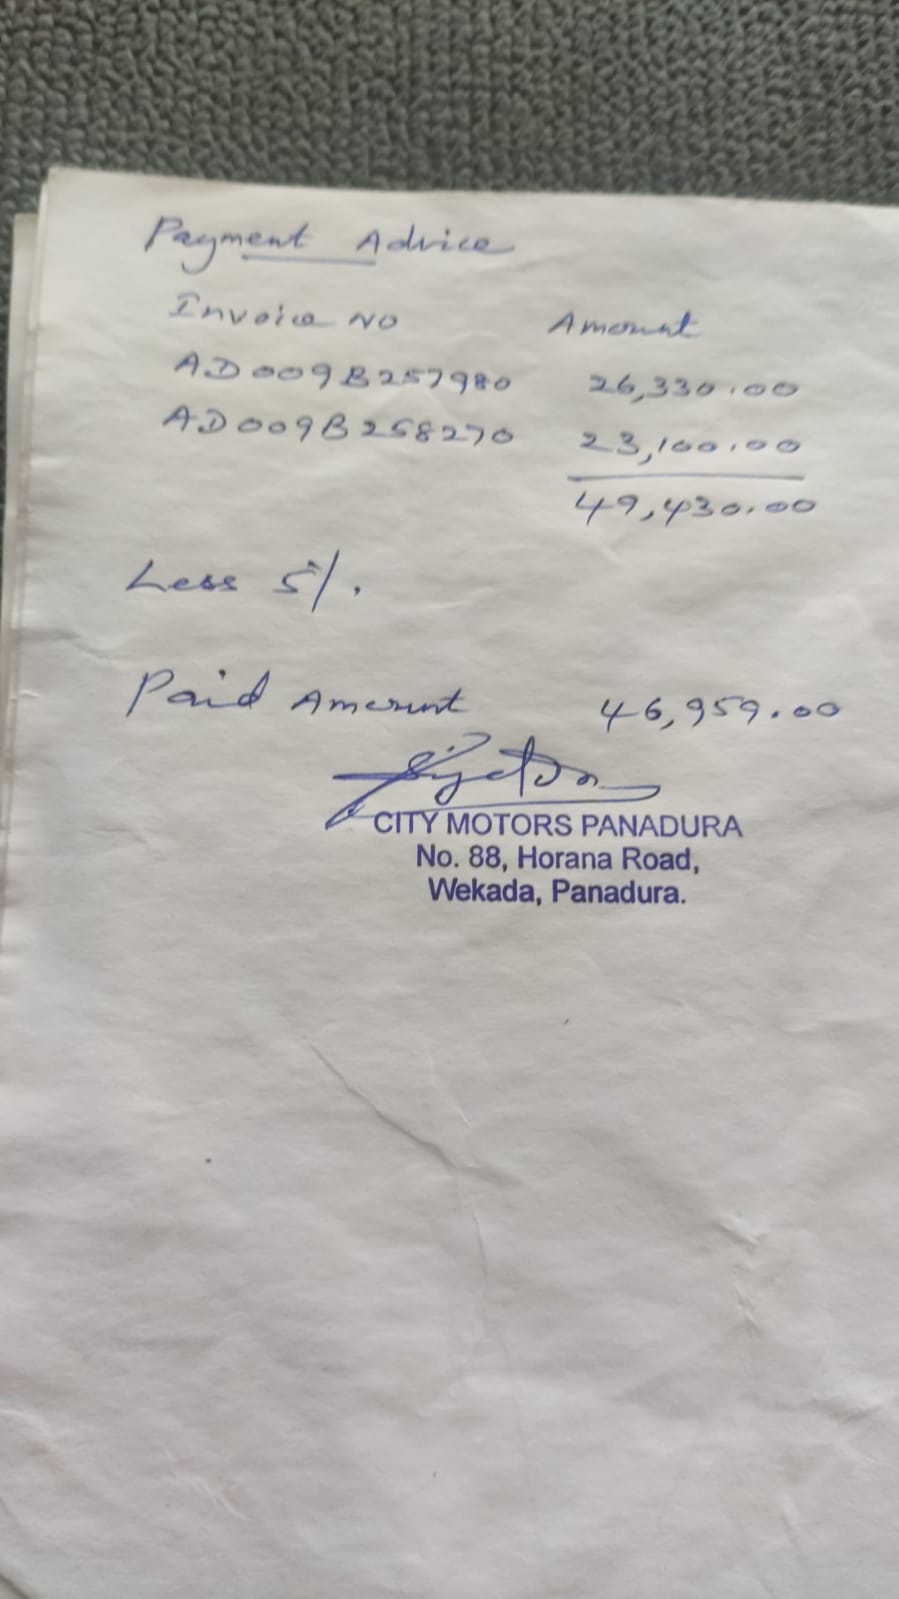 Payment Advice
Invoice No Amount
AD009B257980 26,330.00
AD009B258270 23,100.00
49,430.00
Less 5%.
Paid Amount 46,959.00
CITY MOTORS PANADURA
No. 88, Horana Road,
Wekada, Panadura.